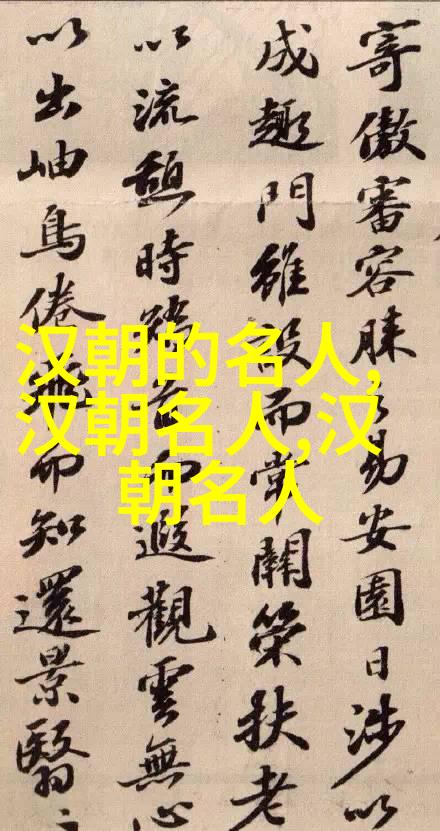 寄傲審容膝之易安園日涉以
成趣門雖設而常關策扶老
以流憩時矯首而遐觀雲無心
以出岫鳥倦飛而知還景翳〻
汉朝的名人,
汉朝名人,汉
朝名人